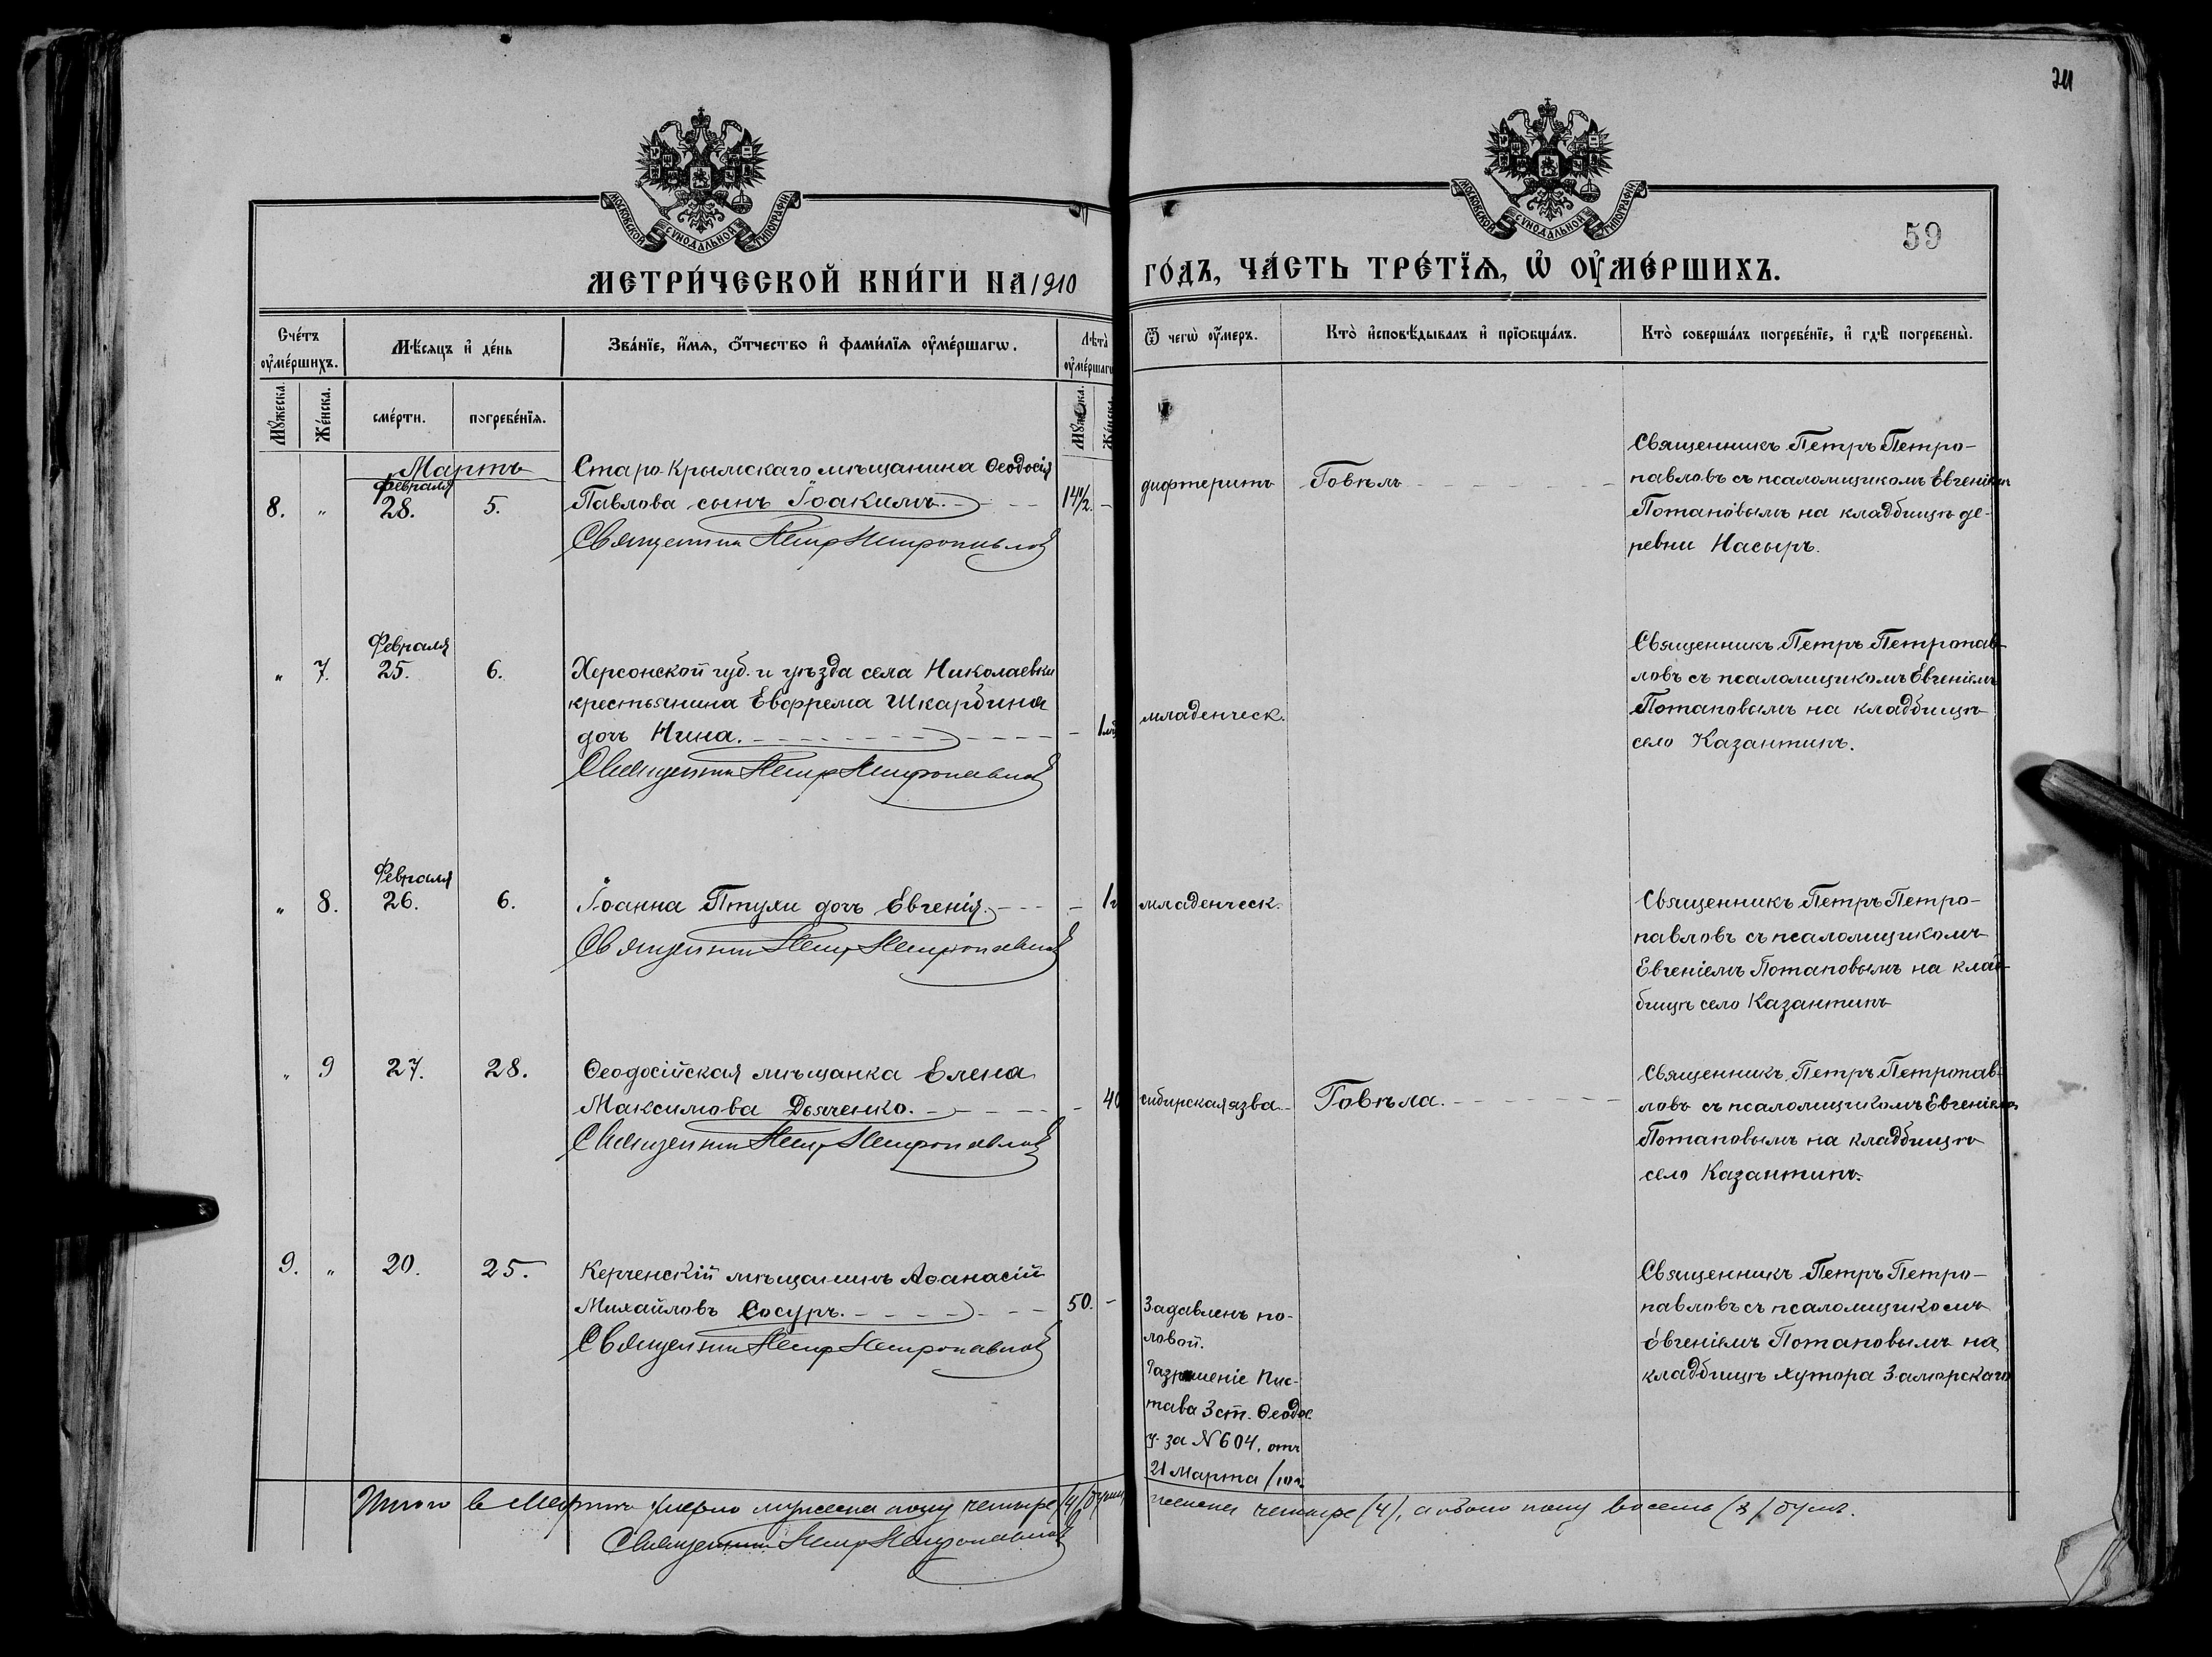 241
МОСКОВСКОЙ СѴНОДАЛЬНОЙ ТИПОГРАФІИ
МОСКОВСКОЙ СѴНОДАЛЬНОЙ ТИПОГРАФІИ
59
МЕТРИ́ЧЕСКОЙ КНИ́ГИ НА 1910 ГО́ДЪ, ЧА́СТЬ ТРЕ́ТЇѦ, Ѡ҆ ОУ҆МЕ́РШИХЪ.
Сче́тъ оу҆ме́ршихъ.
Мѣ́сяцъ и҆ де́нь
Зва́нїе, и҆́мѧ, ѻ҆́тчество и҆ фами́лїѧ оу҆ме́ршагѡ.
Лѣта̀ оу҆ме́ршагѡ
Ѿ чегѡ̀ оу҆́меръ.
Кто̀ и҆сповѣ́дывалъ и҆ прїѡбща́лъ.
Кто̀ соверша́лъ погребе́нїе, и҆ гдѣ̀ погребены̀.
Мꙋ́жеска.
Же́нска.
сме́рти.
погребе́нїѧ.
Мꙋ́жеска.
Же́нска.
Мартъ
8. " Февраля 28. 5.
Старо-Крымскаго мѣщанина Ѳеодосія
Павлова сынъ Іоакимъ. 14½. -
Священникъ Петръ Петропавловъ
дифтеритъ
Говѣлъ
Священникъ Петръ Петро-
павловъ съ псаломщикомъ Евгеніемъ
Потаповымъ на кладбищѣ де-
ревни Насыръ.
" 7. Февраля 25. 6.
Херсонской губ. и уѣзда села Николаевки
крестьянина Евфрема Шкарбина
дочь Нина. - 1
Священникъ Петръ Петропавловъ
младенческ.
Священникъ Петръ Петропав-
ловъ съ псаломщикомъ Евгеніемъ
Потаповымъ на кладбищѣ
село Казантипъ.
" 8. Февраля 26. 6.
Іоанна Птухи дочь Евгенія. - 1
Священникъ Петръ Петропавловъ
младенческ.
Священникъ Петръ Петро-
павловъ съ псаломщикомъ
Евгеніемъ Потаповымъ на клад-
бищѣ село Казантипъ
" 9 27. 28.
Ѳеодосійская мѣщанка Елена
Максимова Дьяченко. - 40
Священникъ Петръ Петропавловъ
сибирская язва.
Говѣла.
Священникъ Петръ Петропав-
ловъ съ псаломщикомъ Евгеніемъ
Потаповымъ на кладбищѣ
село Казантипъ.
9. " 20. 25.
Керченскій мѣщанинъ Аѳанасій
Михайловъ Сосуръ. 50. -
Священникъ Петръ Петропавловъ
Задавленъ по-
ловой.
Разрѣшеніе Прис-
тава 3 ст. Ѳеодос.
у. за №604, отъ
21 Марта /10 г.
Священникъ Петръ Петро-
павловъ съ псаломщикомъ
Евгеніемъ Потаповымъ на
кладбищѣ хутора Заморскаго
Итого въ Мартѣ умерло мужеска полу четыре (4) души женска четыре (4), а обоего полу восемь (8) душъ.
Священникъ Петръ Петропавловъ